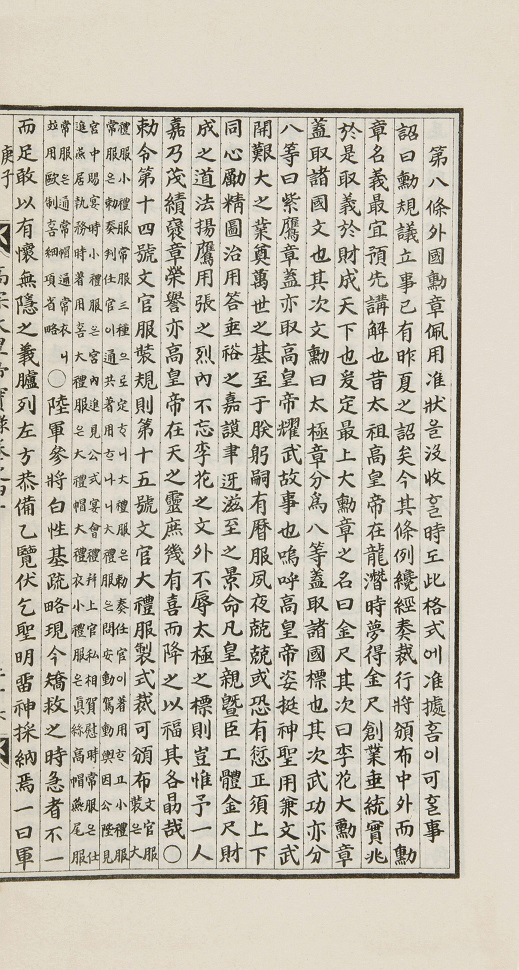 第八條外國勳章佩用准狀을沒收ᄒᆞᆯ時도此格式에准據ᄒᆞᆷ이可ᄒᆞᆯ事
詔曰勳規議立事已有昨夏之詔矣今其條例纔經奏裁行將頒布中外而勳
章名義最宜預先講解也昔太祖高皇帝在龍潛時夢得金尺創業垂統實兆
於是取義於財成天下也爰定最上大勳章之名曰金尺其次曰李花大勳章
蓋取諸國文也其次文勳曰太極章分爲八等蓋取諸國標也其次武功亦分
八等曰紫鷹章蓋亦取高皇帝耀武故事也嗚呼高皇帝姿挺神聖用兼文武
開艱大之業奠萬世之基至于朕躬嗣有曆服夙夜兢兢或恐有愆正須上下
同心勵精圖治用答垂裕之嘉謨聿迓滋至之景命凡皇親曁臣工體金尺財
成之道法揚鷹用張之烈內不忘李花之文外不辱太極之標則豈惟予一人
嘉乃茂績褒章榮譽亦高皇帝在天之靈庶幾有喜而降之以福其各勗哉〇
勅令第十四號文官服裝規則第十五號文官大禮服製式裁可頒布文官服
裝은大
禮服小禮服常服三種으로定ᄒᆞ니大禮服은勅奏任官이着用ᄒᆞ고小禮服
常服은勅奏判任官이通共着用ᄒᆞ니大禮服은問安動駕動輿因公陛見
宮中賜宴時小禮服은宮內進見公式宴會禮拜上官私相賀慰時常服은仕
進燕居執務時着用喜大禮服은大禮帽大禮衣小禮服은眞絲高帽燕尾服
常服은通常帽通常衣니
竝用歐制喜細項省略〇陸軍參將白性基疏略現今矯捄之時急者不一
而足敢以有懷無隱之義臚列左方恭備乙覽伏乞聖明留神採納焉一曰軍
庚子